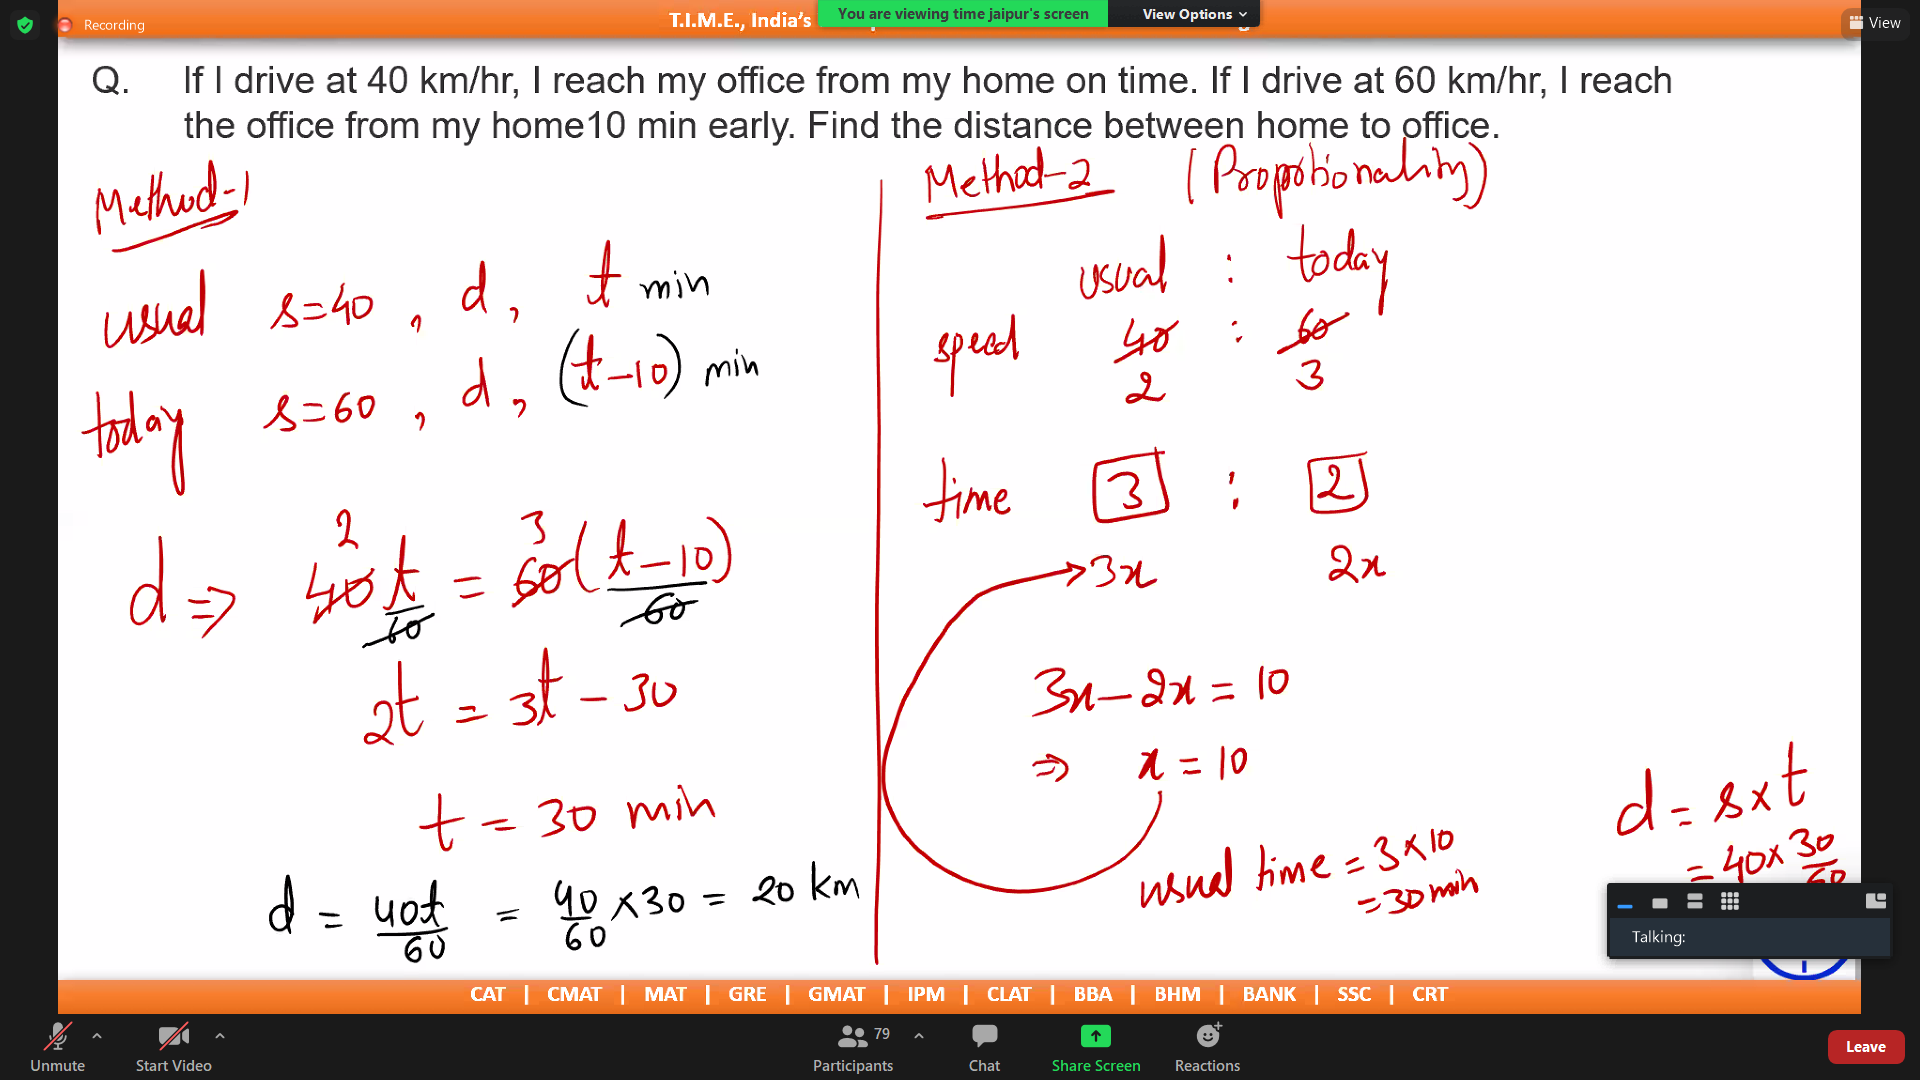 Recording
T.I.M.E., India's
You are viewing time jaipur's screen
View Options
View
Q. If I drive at 40 km/hr, I reach my office from my home on time. If I drive at 60 km/hr, I reach
the office from my home10 min early. Find the distance between home to office.
Method-1
usual s=40, d, t min
today s=60, d, (t-10) min
d ⇒ 40 t/60 = 60 (t-10)/60
2 3
2t = 3t - 30
t = 30 min
d = 40t/60 = 40/60 × 30 = 20 km
Method-2 (Proportionality)
usual : today
speed 40 : 60
2 3
time 3 : 2
3x 2x
3x - 2x = 10
⇒ x = 10
usual time = 3 × 10
= 30 min
d = s × t
= 40 × 30/60
Talking:
CAT | CMAT | MAT | GRE | GMAT | IPM | CLAT | BBA | BHM | BANK | SSC | CRT
Unmute
Start Video
79
Participants
Chat
Share Screen
Reactions
Leave